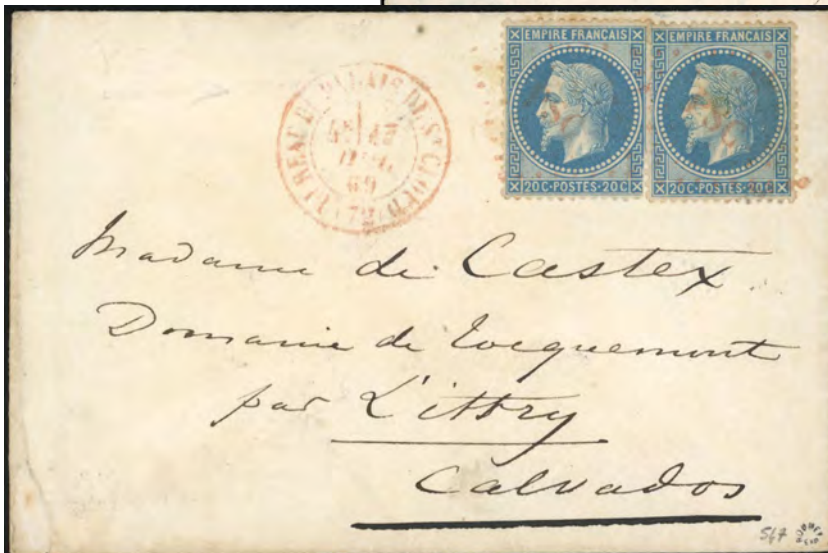 EMPIRE FRANÇAIS
20 C · POSTES · 20 C
EMPIRE FRANÇAIS
20 C · POSTES · 20 C
BUREAU DU PALAIS DE ST CLOUD
69
(72)
Madame de Castex
Domaine de Tocquemont
par L'ittry
Calvados
567